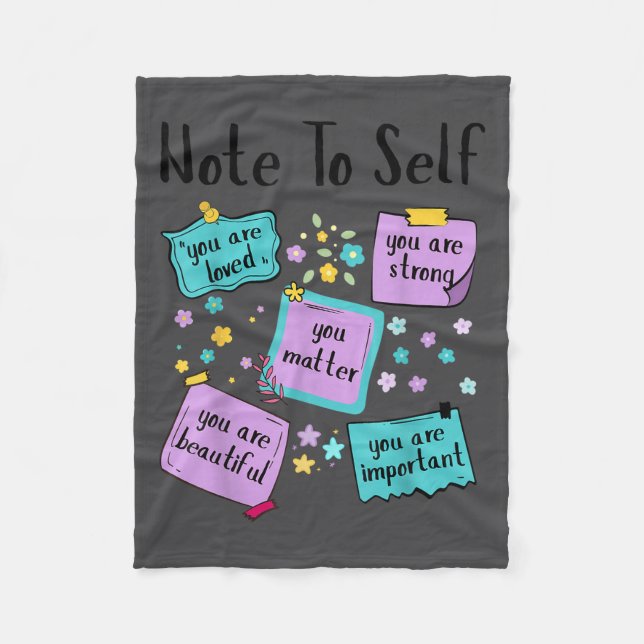 Note To Self
"you are
loved"
you are
strong
you
matter
you are
beautiful
you are
important